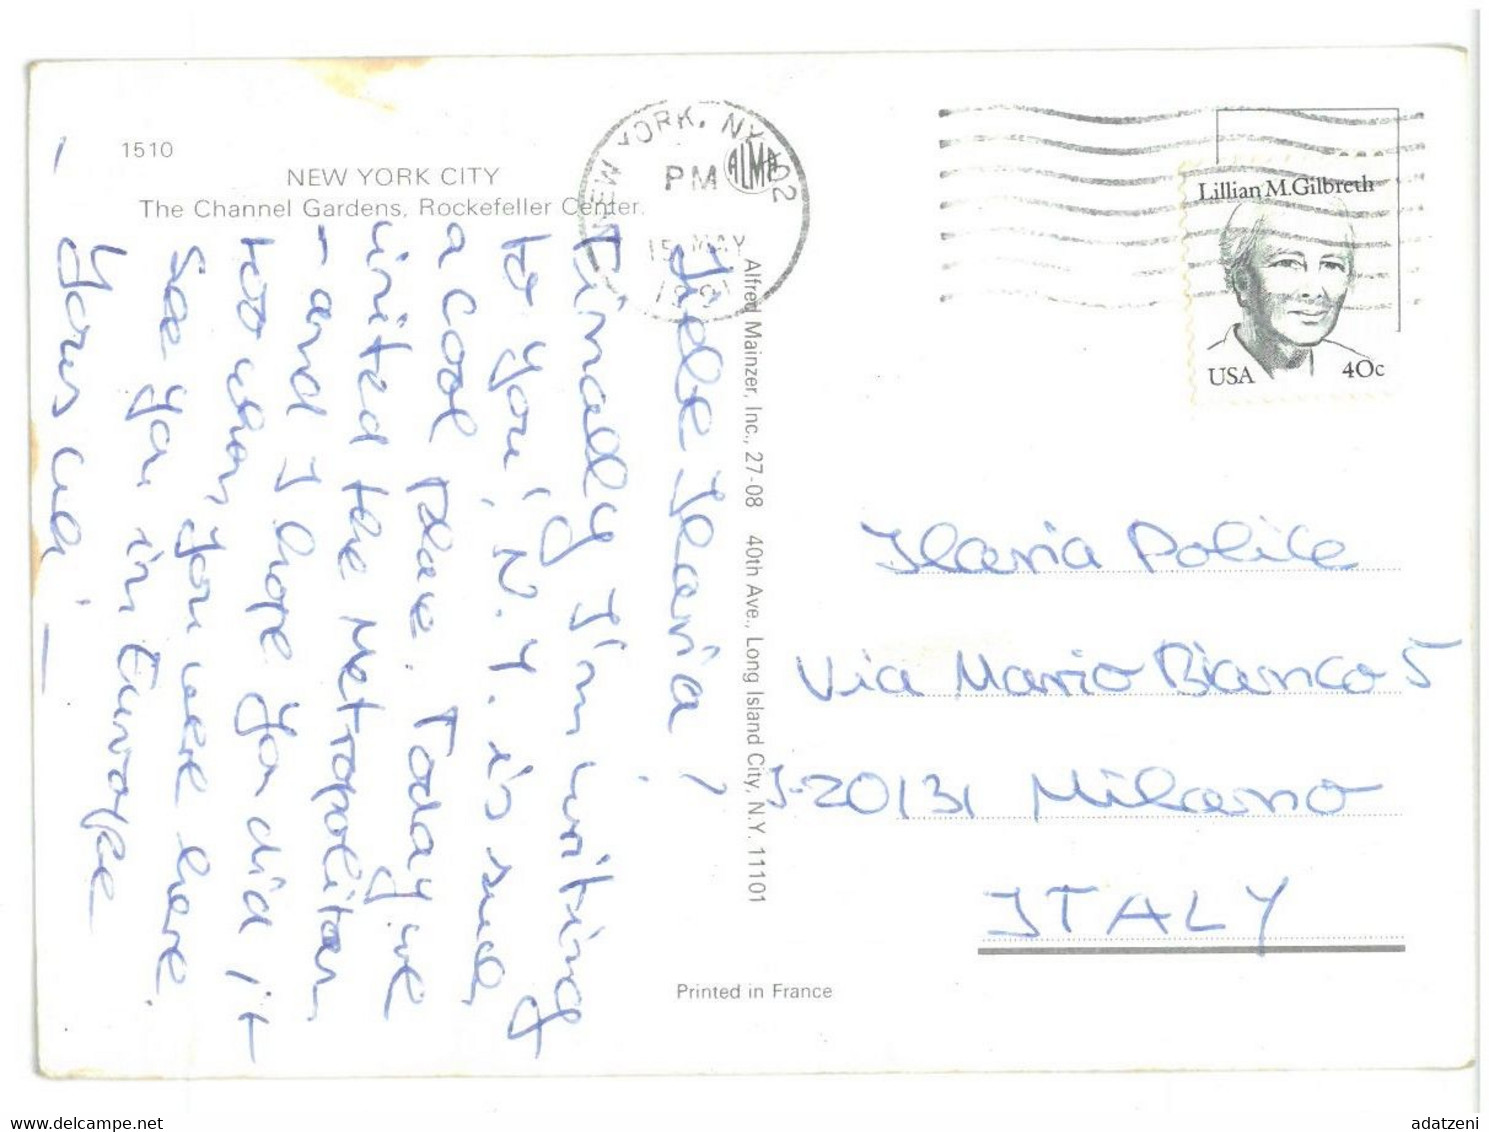 1510
NEW YORK CITY
The Channel Gardens, Rockefeller Center.
NEW YORK, NY
PM
15 MAY
ALMA
Lillian M. Gilbreth
USA 40c
Liebe Ilaria!
Finally I'm writing
to you! N.Y. is such
a cool place. Today we
visited the Metropolitan
- and I hope you did it
too when you were here.
See you in Europe
Yours
Alfred Mainzer, Inc., 27-08 40th Ave., Long Island City, N.Y. 11101
Ilaria Police
Via Mario Bianco 5
I-20131 Milano
ITALY
Printed in France
www.delcampe.net
adatzeni